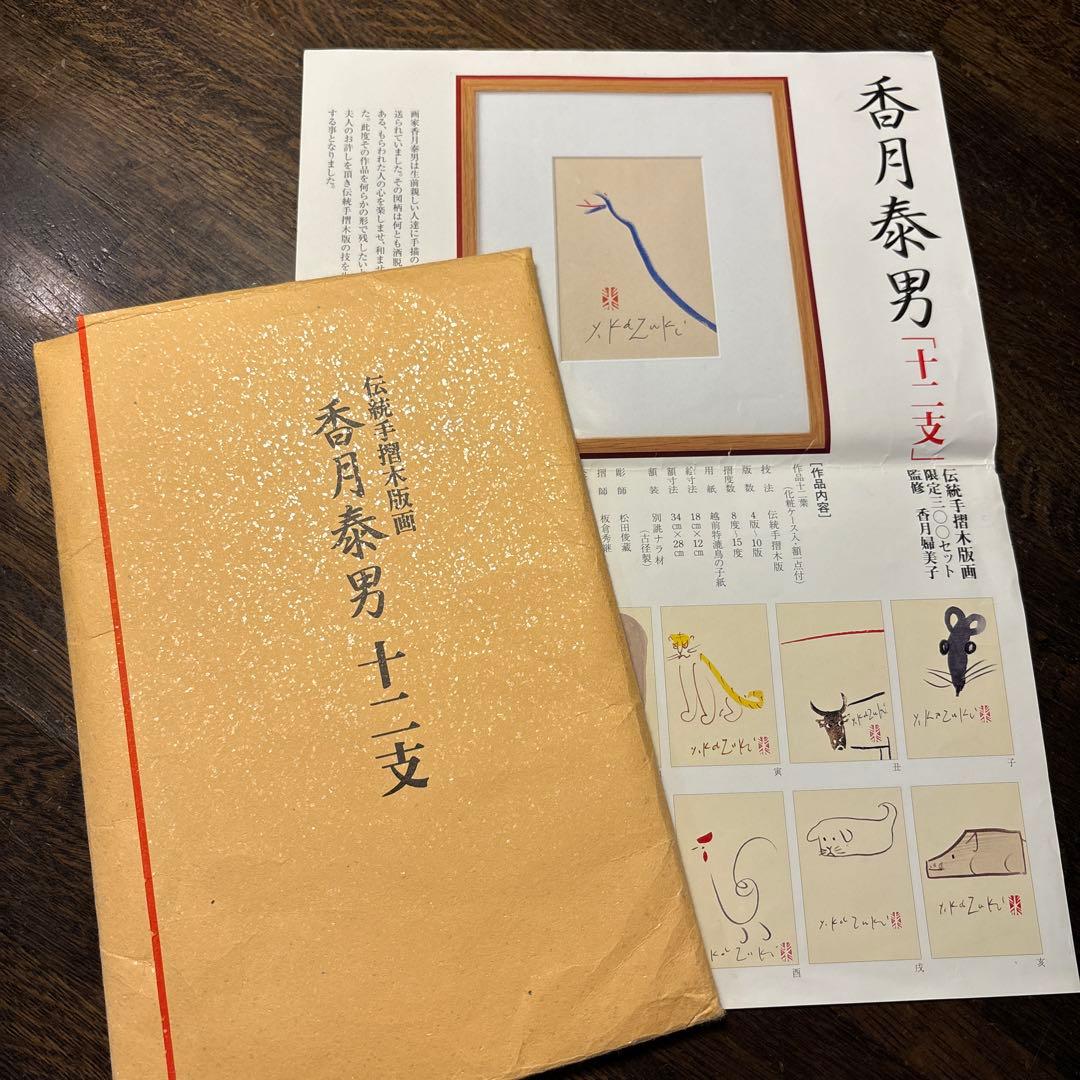 伝統手摺木版画
香月泰男 十二支
香月泰男「十二支」
伝統手摺木版画
限定三〇〇セット
監修 香月婦美子
画家香月泰男は生前親しい人達に手描の
送られていました。その図柄は何とも洒脱
ある、もらわれた人の心を楽しませ、和ませ
た。此度その作品を何らかの形で残したいと
夫人のお許しを頂き伝統手摺木版の技を
する事となりました。
y.KaZuki
[作品内容]
作品十二葉
(化粧ケース入・額一点付)
技法 伝統手摺木版
版数 4版~10版
摺度数 8度~15度
用紙 越前特漉鳥の子紙
絵寸法 18cm×12cm
額寸法 34cm×28cm
額装 別誂ナラ材
(古径製)
彫師 松田俊蔵
摺師 板倉秀継
y.KaZuki
子
y.KaZuki
丑
y.KaZuki
寅
y.KaZuki
亥
y.KaZuki
戌
KaZuki
酉